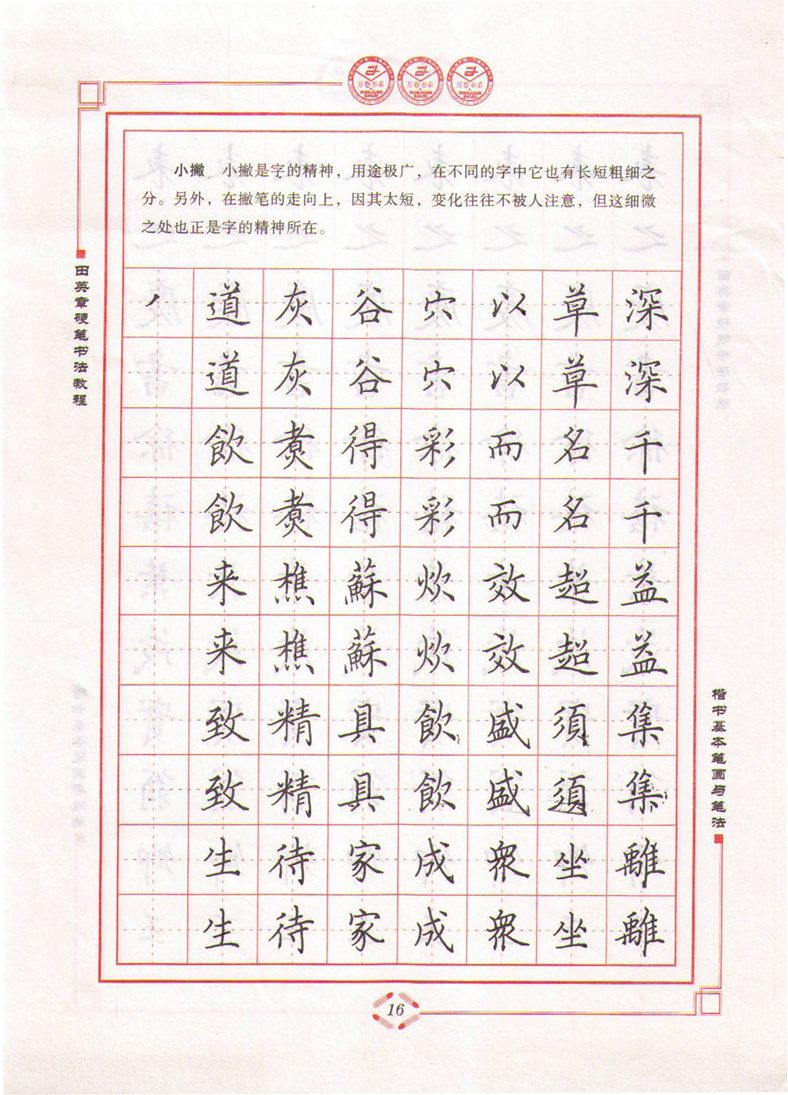 万卷书系 万卷书系 万卷书系
WANJUAN SHUXI WANJUAN SHUXI WANJUAN SHUXI
小撇 小撇是字的精神，用途极广，在不同的字中它也有长短粗细之
分。另外，在撇笔的走向上，因其太短，变化往往不被人注意，但这细微
之处也正是字的精神所在。
田英章硬笔书法教程
丿 道 灰 谷 穴 以 草 深
道 灰 谷 穴 以 草 深
飲 煮 得 彩 而 名 千
飲 煮 得 彩 而 名 千
来 樵 蘇 炊 效 超 益
来 樵 蘇 炊 效 超 益
致 精 具 飲 盛 須 集
致 精 具 飲 盛 須 集
生 待 家 成 衆 坐 離
生 待 家 成 衆 坐 離
楷书基本笔画与笔法
16